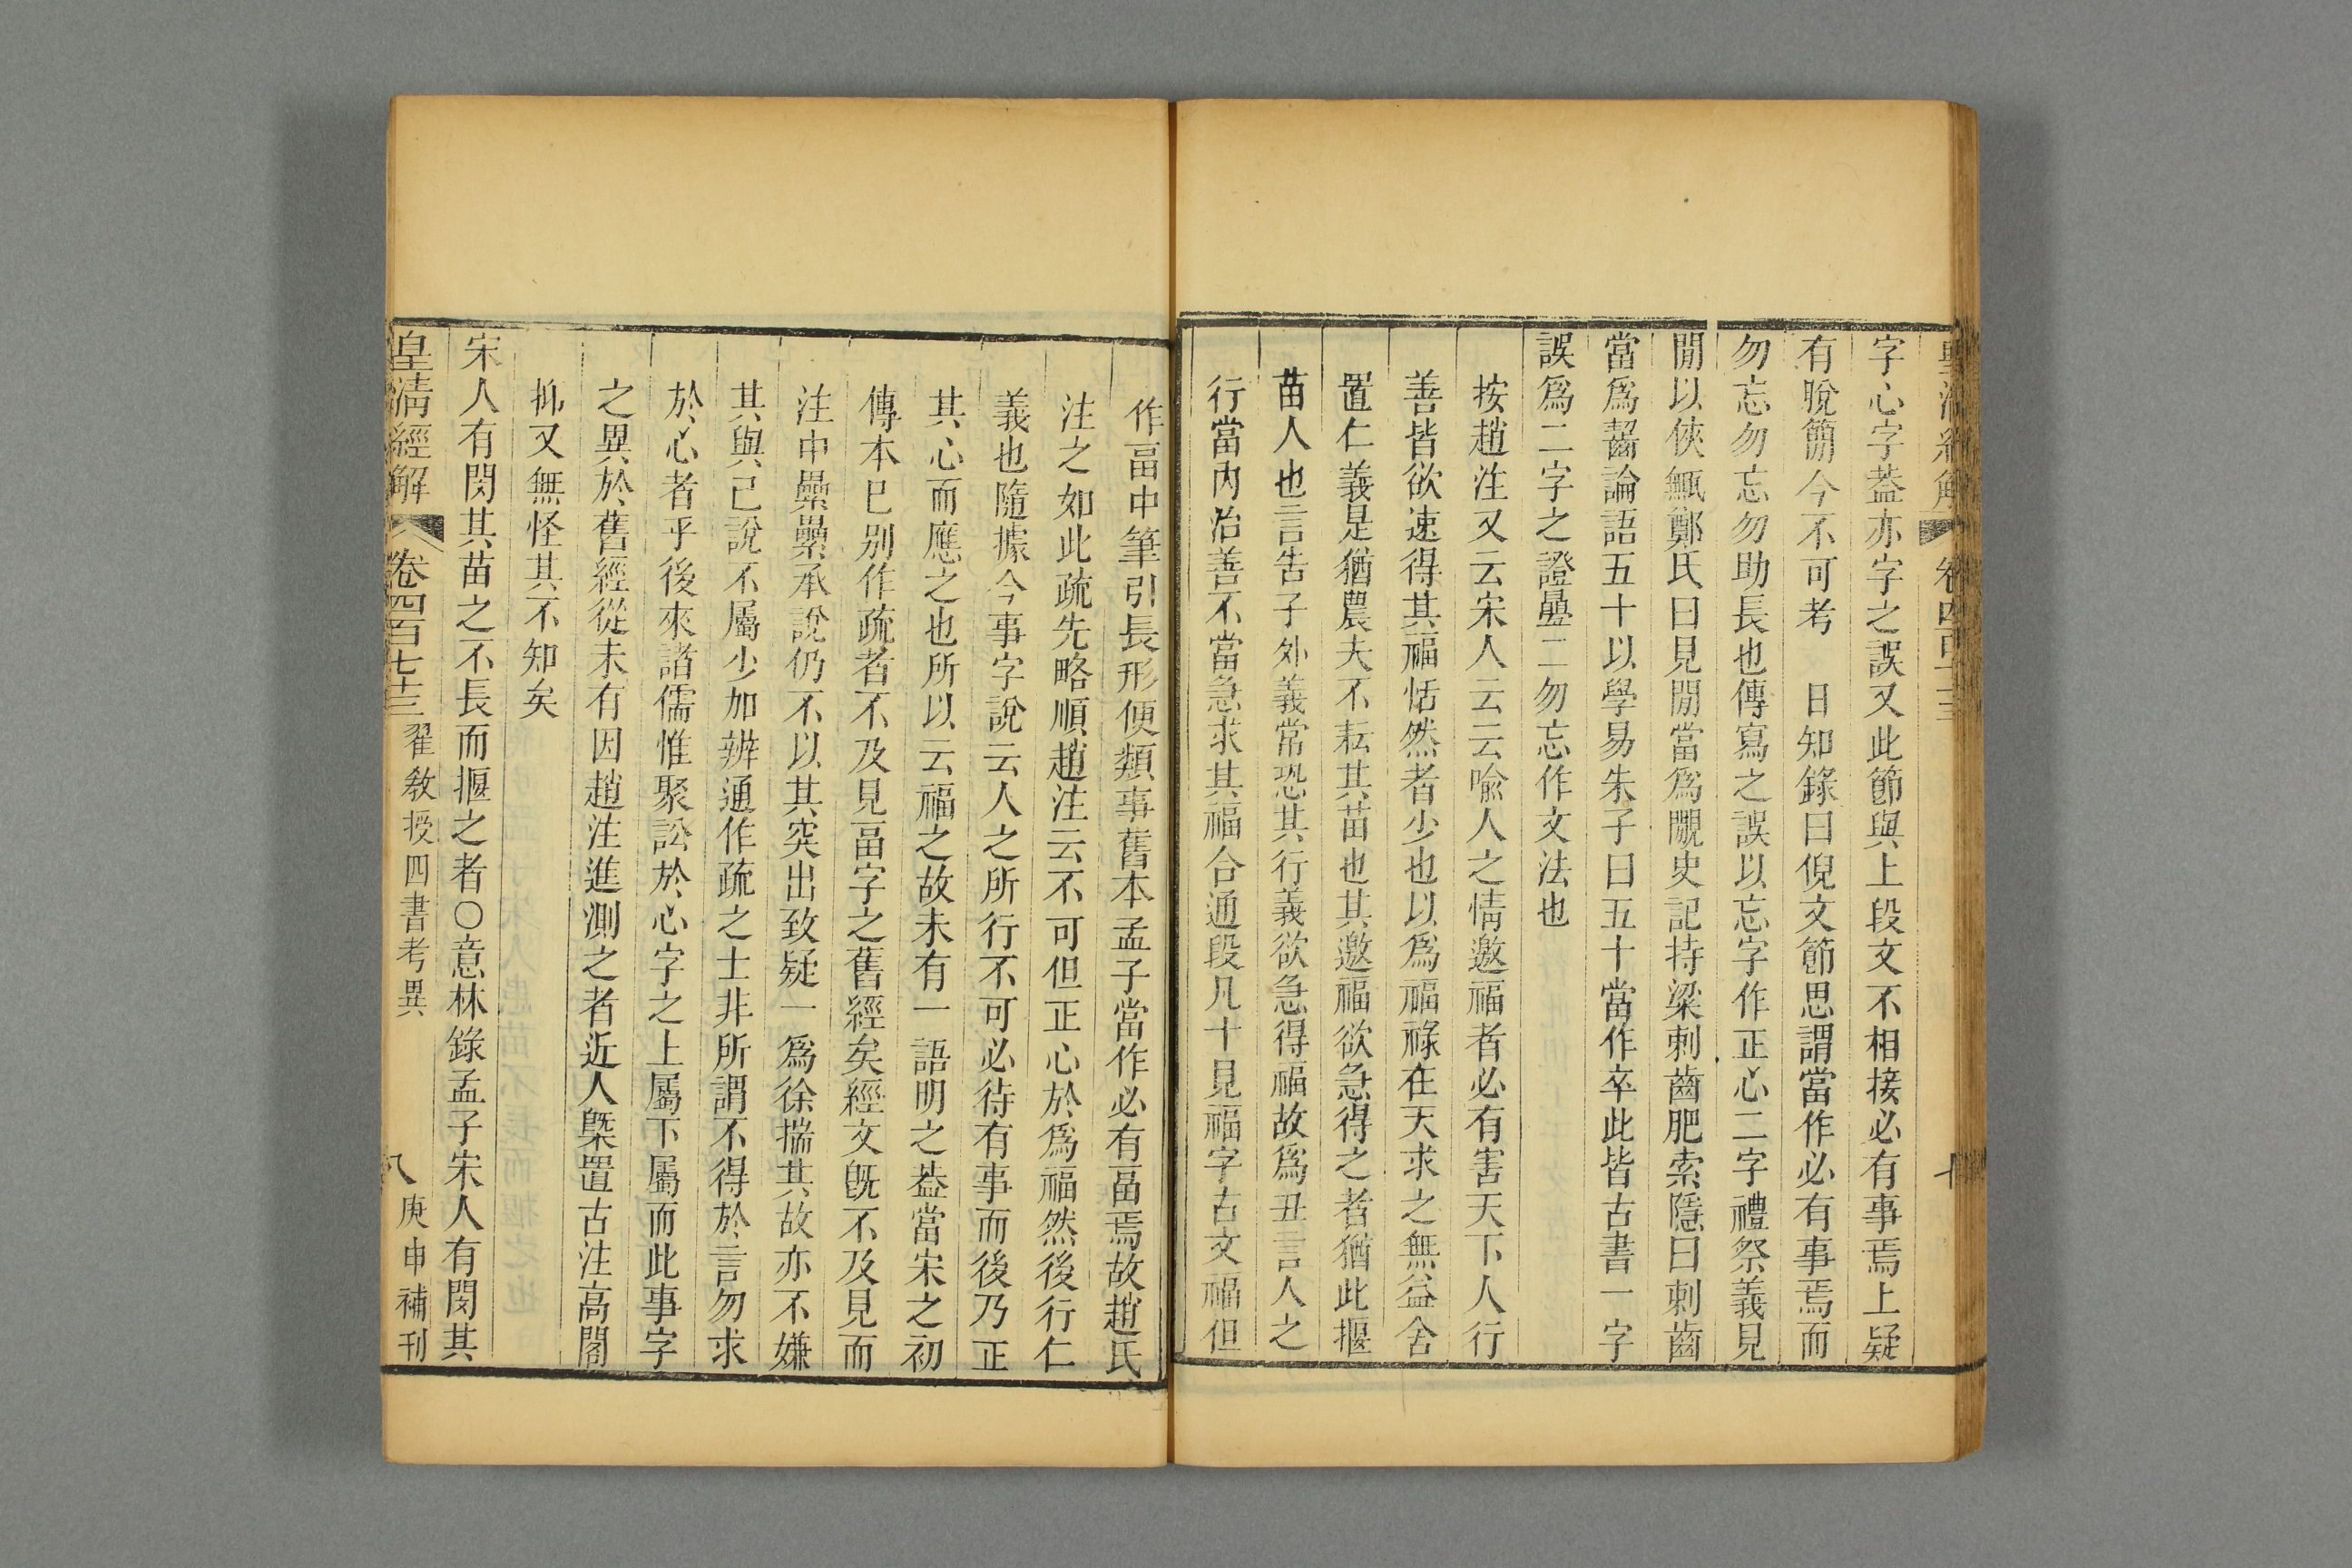 字心字葢亦字之誤又此節與上段文不相接必有事焉上疑
有脫簡今不可考　日知錄曰倪文節思謂當作必有事焉而
勿忘勿忘勿助長也傳寫之誤以忘字作正心二字禮祭義見
閒以俠甒鄭氏曰見閒當爲覸史記持梁刺齒肥索隱曰刺齒
當爲齧論語五十以學易朱子曰五十當作卒此皆古書一字
誤爲二字之證疊二勿忘作文法也
按趙注又云宋人云云喻人之情邀福者必有害天下人行
善皆欲速得其福恬然者少也以爲福祿在天求之無益舍
置仁義是猶農夫不耘其苗也其邀福欲急得之者猶此揠
苗人也言告子外義常恐其行義欲急得福故爲丑言人之
行當內治善不當急求其福合通段凡十見福字古文福但
作畐中筆引長形便類事舊本孟子當作必有畐焉故趙氏
注之如此疏先略順趙注云不可但正心於爲福然後行仁
義也隨據今事字說云人之所行不可必待有事而後乃正
其心而應之也所以云福之故未有一語明之葢當宋之初
傳本巳別作疏者不及見畐字之舊經矣經文旣不及見而
注中纍纍承說仍不以其突出致疑一爲徐揣其故亦不嫌
其與己說不屬少加辨通作疏之士非所謂不得於言勿求
於心者乎後來諸儒惟聚訟於心字之上屬下屬而此事字
之異於舊經從未有因趙注進測之者近人槩置古注高閣
抑又無怪其不知矣
宋人有閔其苗之不長而揠之者○意林錄孟子宋人有閔其
皇清經解　卷四百七十三　翟敎授四書考異　八　庚申補刊